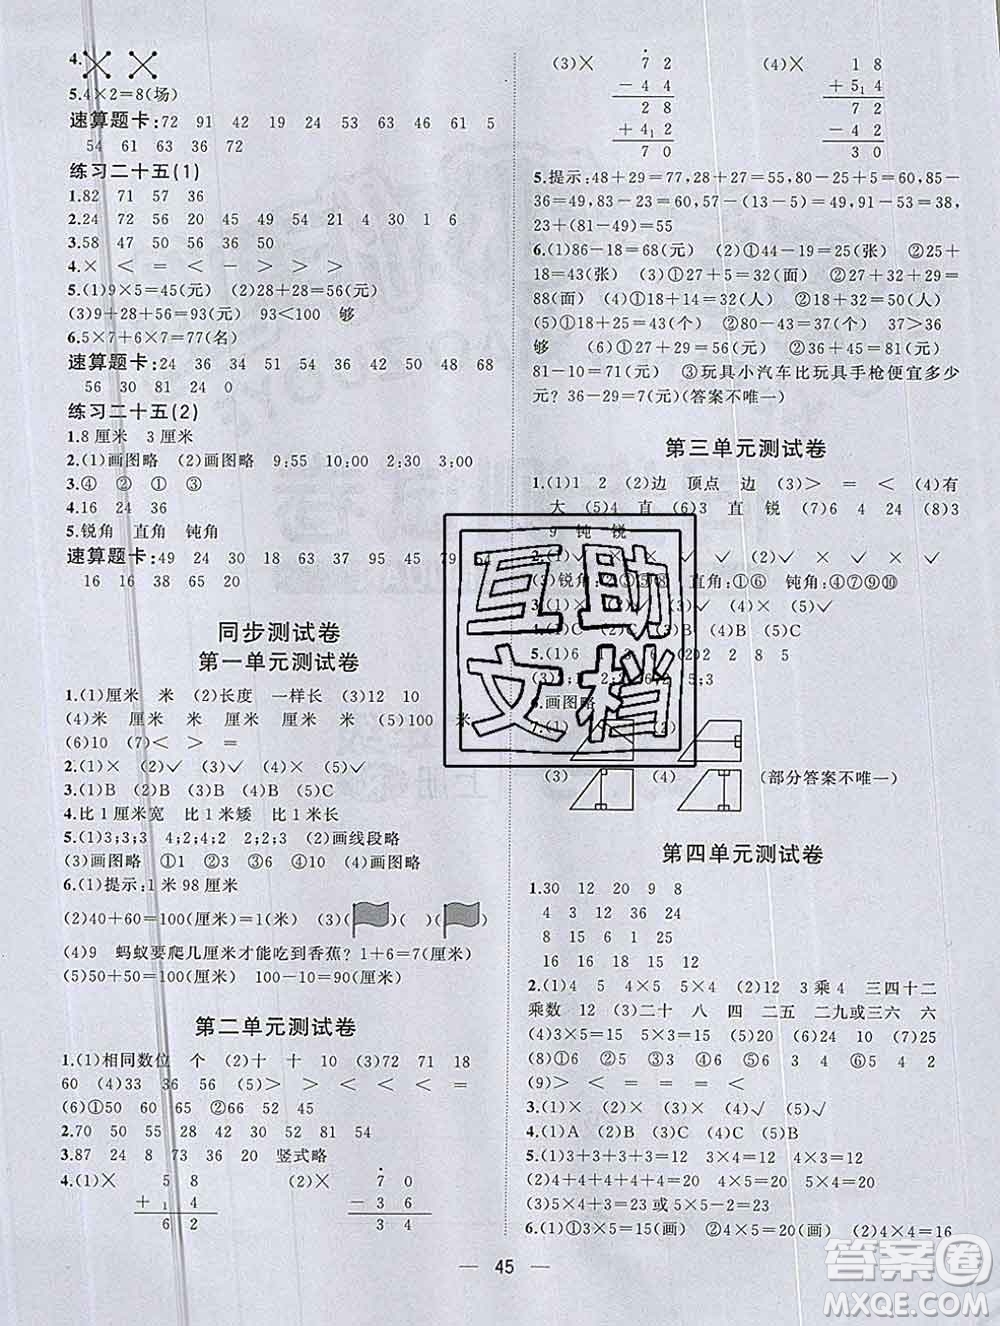 4.
5.4×2=8(场)
速算题卡:72 91 42 19 24 53 64 46 61 5
54 61 63 36 72
练习二十五(1)
1.82 71 57 36
2.24 72 56 20 45 49 24 54 30 1 6
3.58 47 50 56 36 50
4.× < = < − > > =
5.(1)9×5=45(元) (2)28+28=56(元)
(3)9+28+56=93(元) 93<100 够
6.5×7+6×7=77(名)
速算题卡:24 36 34 51 56 54 36 48 24
56 30 81 24 0
练习二十五(2)
1.8厘米 3厘米
2.(1)画图略 (2)画图略 9:55 10:00 2:30
3.④ ② ① ③
4.16 24 36
5.锐角 直角 钝角
速算题卡:49 24 30 18 63 37 95 45 79 54
16 16 38 65 20
同步测试卷
第一单元测试卷
1.(1)厘米 米 (2)长度 一样长 (3)12 10
(4)米 厘米 米 厘米 厘米 米 (5)100 米
(6)10 (7)< > =
2.(1)√ (2)√ (3)× (4)√ (5)×
3.(1)B (2)A (3)B (4)B (5)C
4.比1厘米宽 比1米矮 比1米长
5.(1)3;3;3 4;2;4;2 2;2 (2)画线段略
(3)画图略 ①1 ②3 ③2
6.(1)提示:1米98厘米
(2)40+60=100(厘米)=1(米) (3)( )( )
(4)9 蚂蚁要爬几厘米才能吃到香蕉? 1+6=7(厘米)
(5)50+50=100(厘米) 100−10=90(厘米)
第二单元测试卷
1.(1)相同数位 个 (2)十 十 10 (3)72 71 18
60 (4)33 36 56 (5)> > < < < =
(6)①50 94 ②91 24 ③52 45
2.70 50 55 28 42 30 52 81 54
3.87 24 8 73 36 20 竖式略
4.(1)× 58 (2)× 70
+14 −36
62 34
(3)× 72 (4)× 18
−44 +54
28 72
+42
70
5.提示:48+29=77,29+26=55,80+5=85,85−
36=49,83−23=60,57−(13−5)=49,29+9=38,
23+(81−49)=55
6.(1)86−18=68(元) (2)①44−19=25(张) ②25+
18=43(张) (3)①27+5=32(面) ②27+32+29=
88(面) (4)①18+14=32(人) ②18+32=50(人)
(5)①8+29=37(元) ②80−44=36(元) 37>36
够 (6)①27+29=56(元) ②36+45=81(元)
81−10=71(元) ③玩具小汽车比玩具手枪便宜多少
元? 36−29=7(元)(答案不唯一)
第三单元测试卷
1.(1)1 2 (2)边 顶点 边 (3)> = < (4)有
大 (5)4 直 (6)3 直 锐 (7)6 4 24 (8)3
9 钝 锐
2.(1)× √ √ √ (2)√ × √ √
(3)锐角:②③⑤⑧ 直角:①⑥ 钝角:④⑦⑨⑩
× (4)× (5)√
4.(1)C B (4)B (5)C
2 2 8 5
6.画图略
7.(1) (2)
(3) (4) (部分答案不唯一)
第四单元测试卷
1.30 12 20 9 8
4 3 12 36 24
8 15 6 1 25
16 16 18 12 15
2.(1)4 5 4×5 5×4 (2)12 3乘4 三四十二
乘数 12 (3)二十 八 四 二五 二九或三六 六
(4)3×5=15 5×3=15 (5)24 (6)16 (7)25
(8)①5 6 5×6=30 6×5=30 ②5 6 4 2
(9)> = < < = <
3.(1)× (2)× (3)× (4)√ (5)√
4.(1)A (2)B (3)C (4)C (5)B
5.(1)3+3+3+3=12 3×4=12 4×3=12
(2)4+4+4+4+4=20 4×5=20 5×4=20
(3)5×4+3=23或5×5−2=23
6.(1)①3×5=15(画) ②4×5=20(画) (2)4×4=16
45
互助文档
答案圈
MXQE.COM